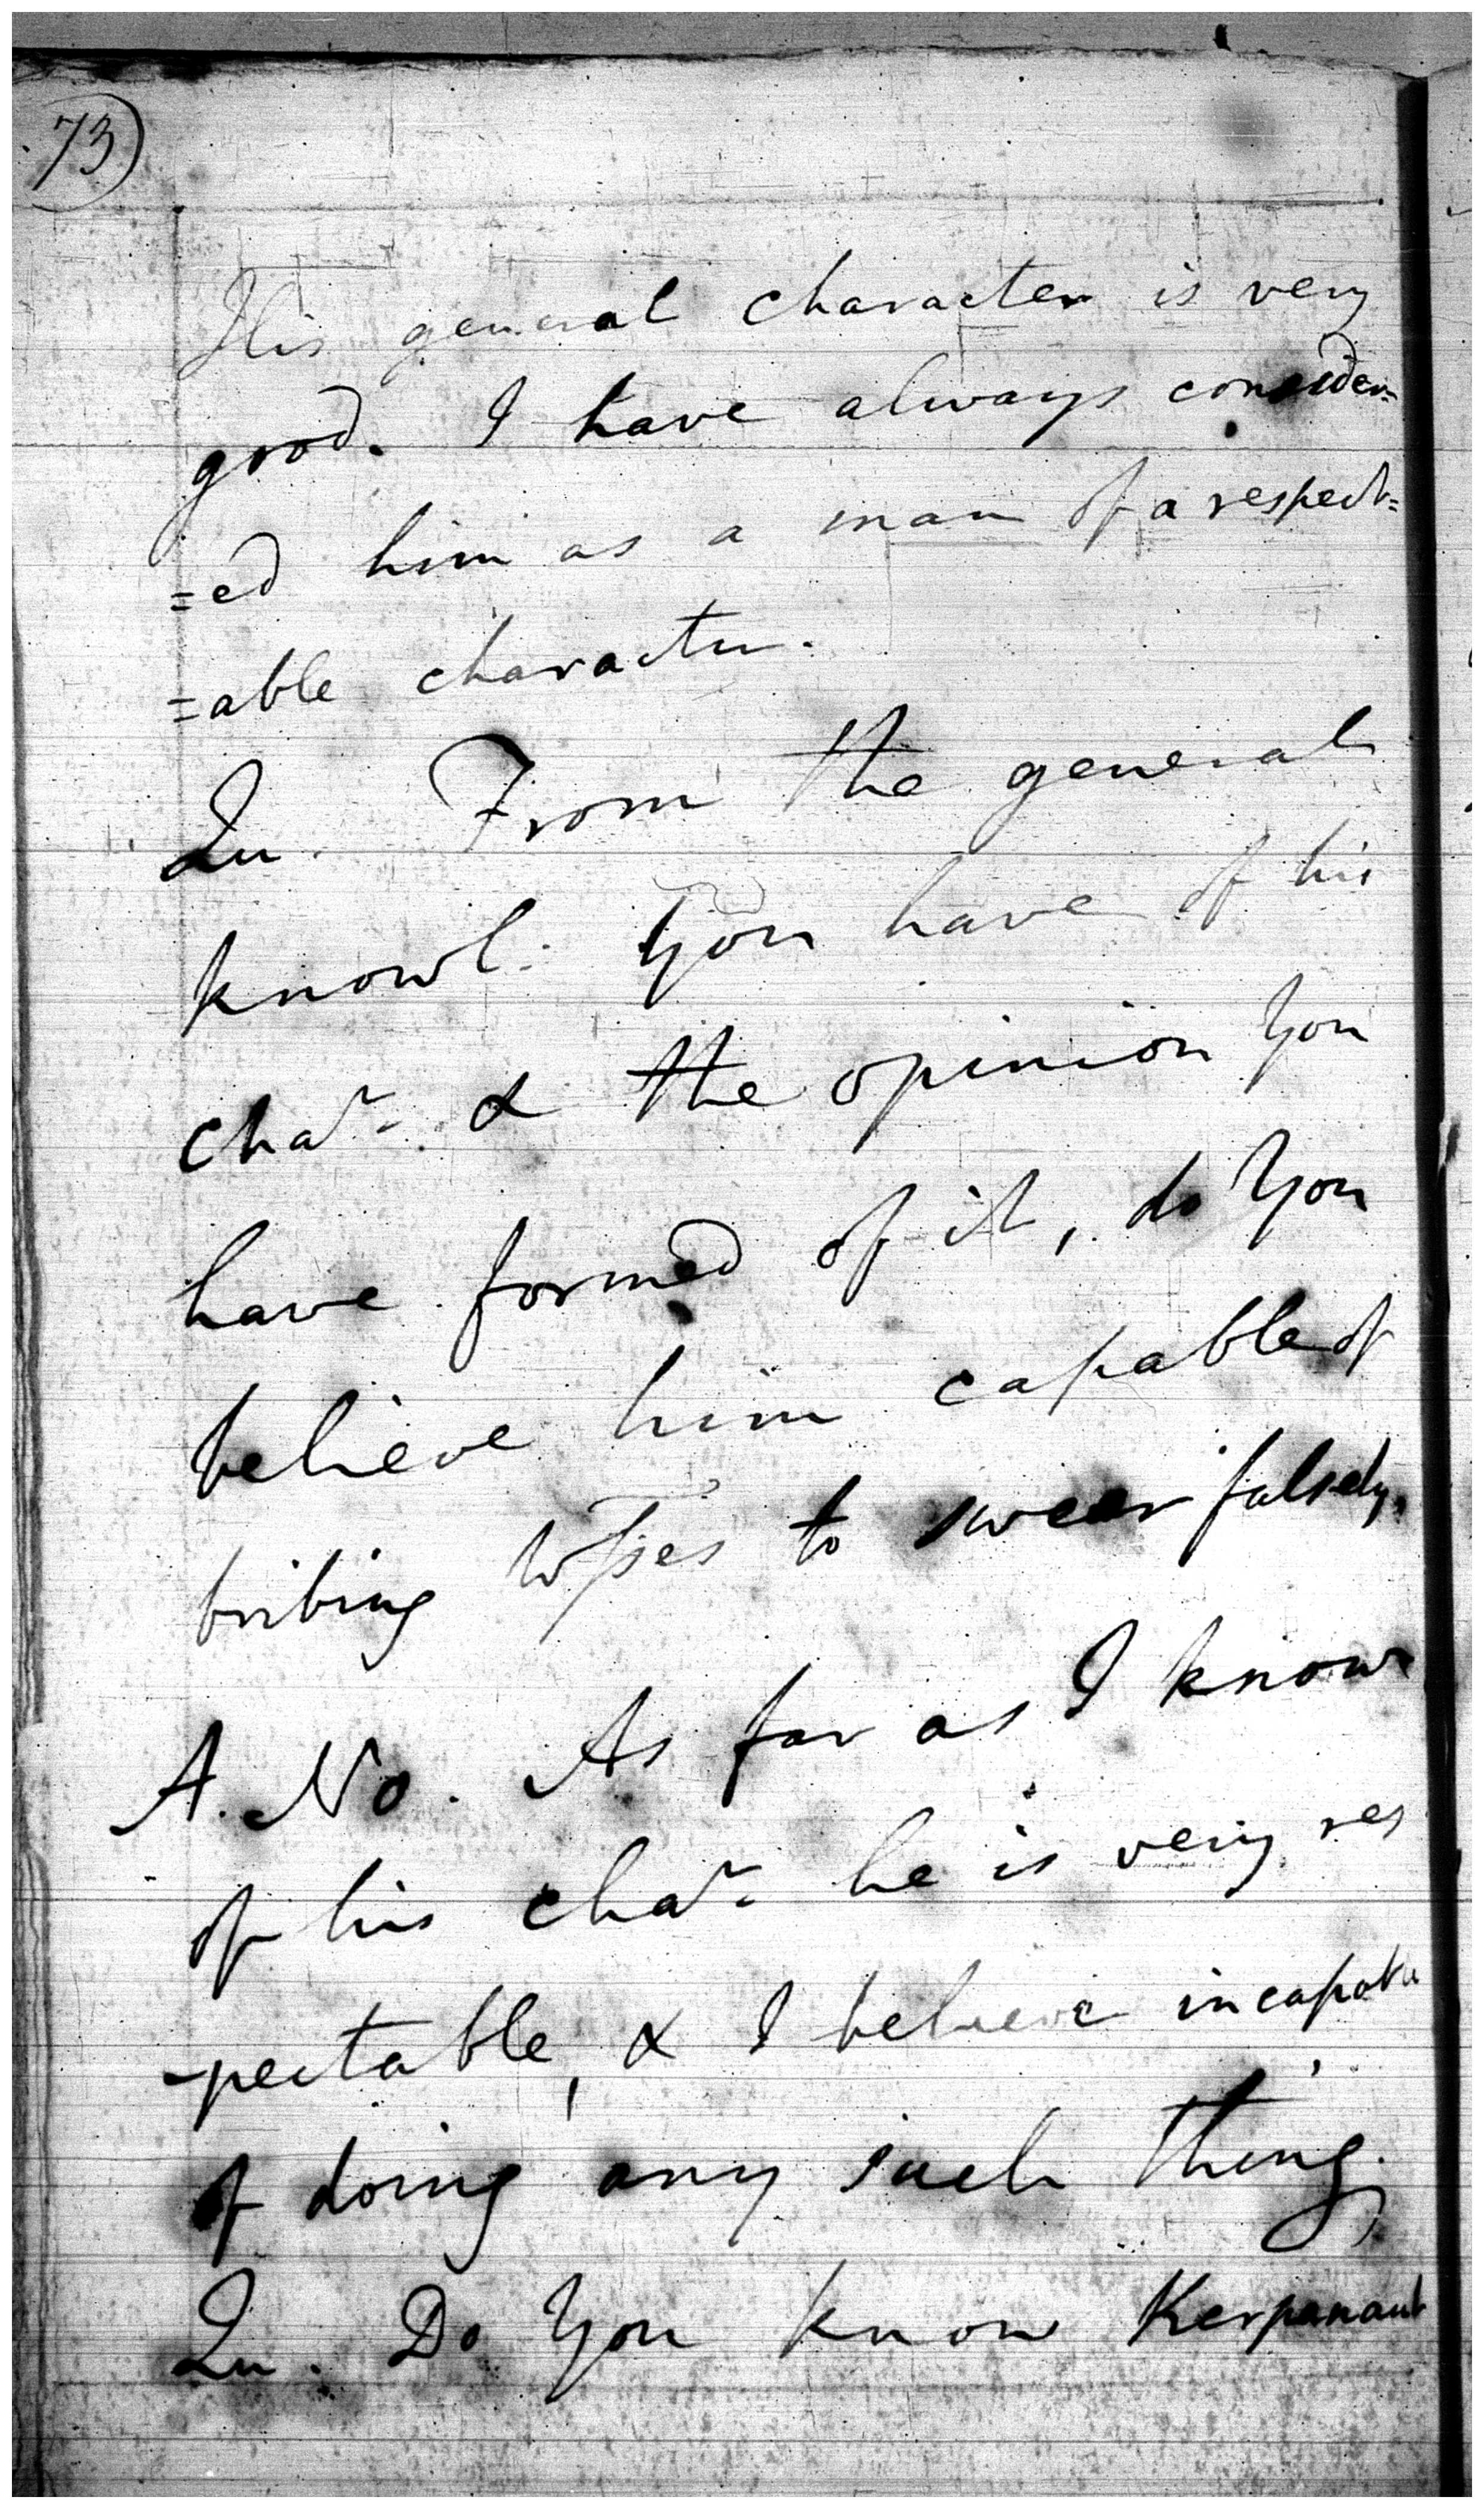 73)
His general character is very
good. I have always consider=
=ed him as a man of a respect=
=able character.
Qu. From the general
knowl: You have of his
char. & the opinion You
have formed of it, do You
believe him capable of
bribing Wsses to swear falsely.
A. No. As far as I know
of his char. he is very res
-pectable, & I believe incapable
of doing any such thing.
Qu. Do You know Kerpanaut